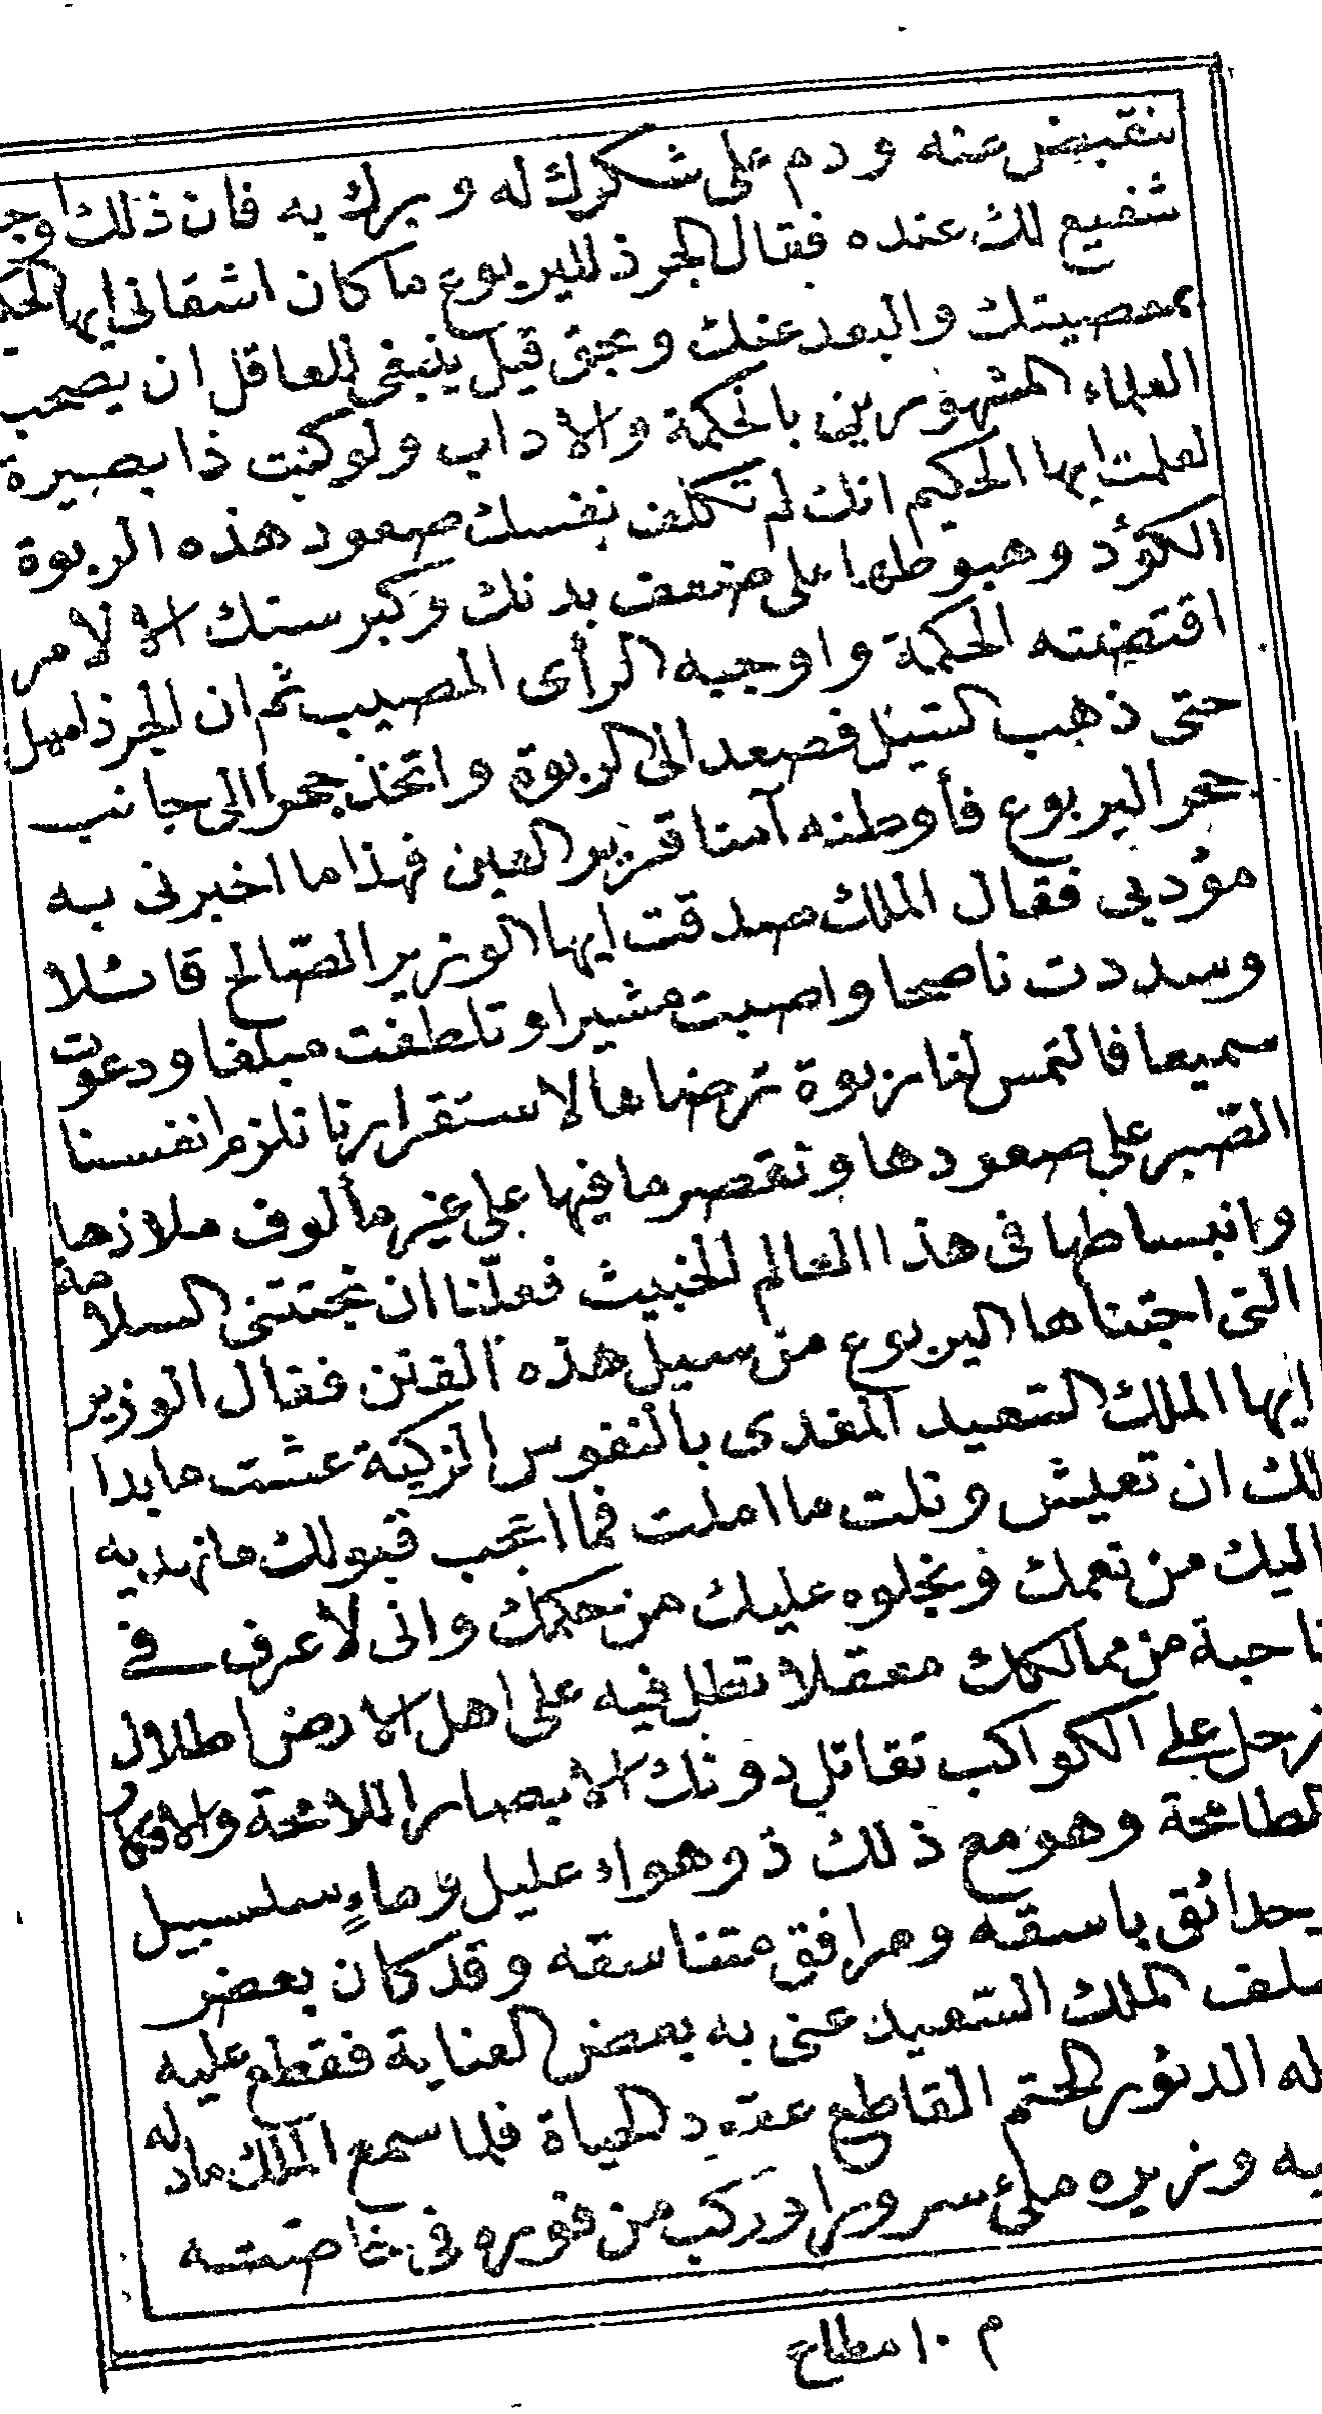 تنقبض عنه ودم على شكرك له وبرك به فان ذلك اوجـ
شفيع لك عنده فقال الجرذ لليربوع ما كان اشقانى ايها الحكـ
بمعصيتك والبعد عنك وبحق قيل ينبغى للعاقل ان يصحب
العلماء المشهورين بالحكمة والاداب ولو كنت ذا بصيرة
لعلمت ايها الحكيم انك لم تكلف نفسك صعود هذه الربوة
الكؤد وهبوطها على ضعف بدنك وكبر سنك الا لامر
اقتضته الحكمة واوجبه الرأى المصيب ثم ان الجرذ امهل
حتى ذهب السيل فصعد الى الربوة واتخذ جحرا الى جانب
جحر اليربوع فأوطنه آمنا قرير العين فهذا ما اخبرنى به
مؤدبى فقال الملك صدقت ايها الوزير الصّالح قائلا
وسددت ناصحا واصبت مشيرا وتلطفت مبلغا ودعوت
سميعا فالتمس لنا ربوة ترضاها لاستقرارنا نلزم انفسنا
الصّبر على صعودها ونقصر ما فيها على غير مألوف ملاذها
وانبساطها فى هذا العالم الخبيث فعلّنا ان نجتنى السلامة
التى اجتناها اليربوع من سيل هذه الفتن فقال الوزير
ايها الملك السّعيد المفدى بالنفوس الزكيّة عشت ما بدا
لك ان تعيش ونلت ما املت فما اعجب قبولك ما نهديه
اليك من نعمك ونجلوه عليك من حكمك وانى لأعرف فى
ناحية من ممالكك معقلا تطل فيه على اهل الارض اطلال
زحل على الكواكب تقاتل دونك الابصار اللامحة والافكار
الطامحة وهو مع ذلك ذو هواء عليل وماءٍ سلسبيل
بحدائق باسقه ومرافق متناسقه وقد كان بعض
سلف الملك السّعيد عنى به بعض العناية فقطع عليه
له الدثور الحتم القاطع عقود الحياة فلما سمع الملك ما دله
به وزيره ملئ سرورا وركب من فوره فى خاصّته
م ١٠ مطلح